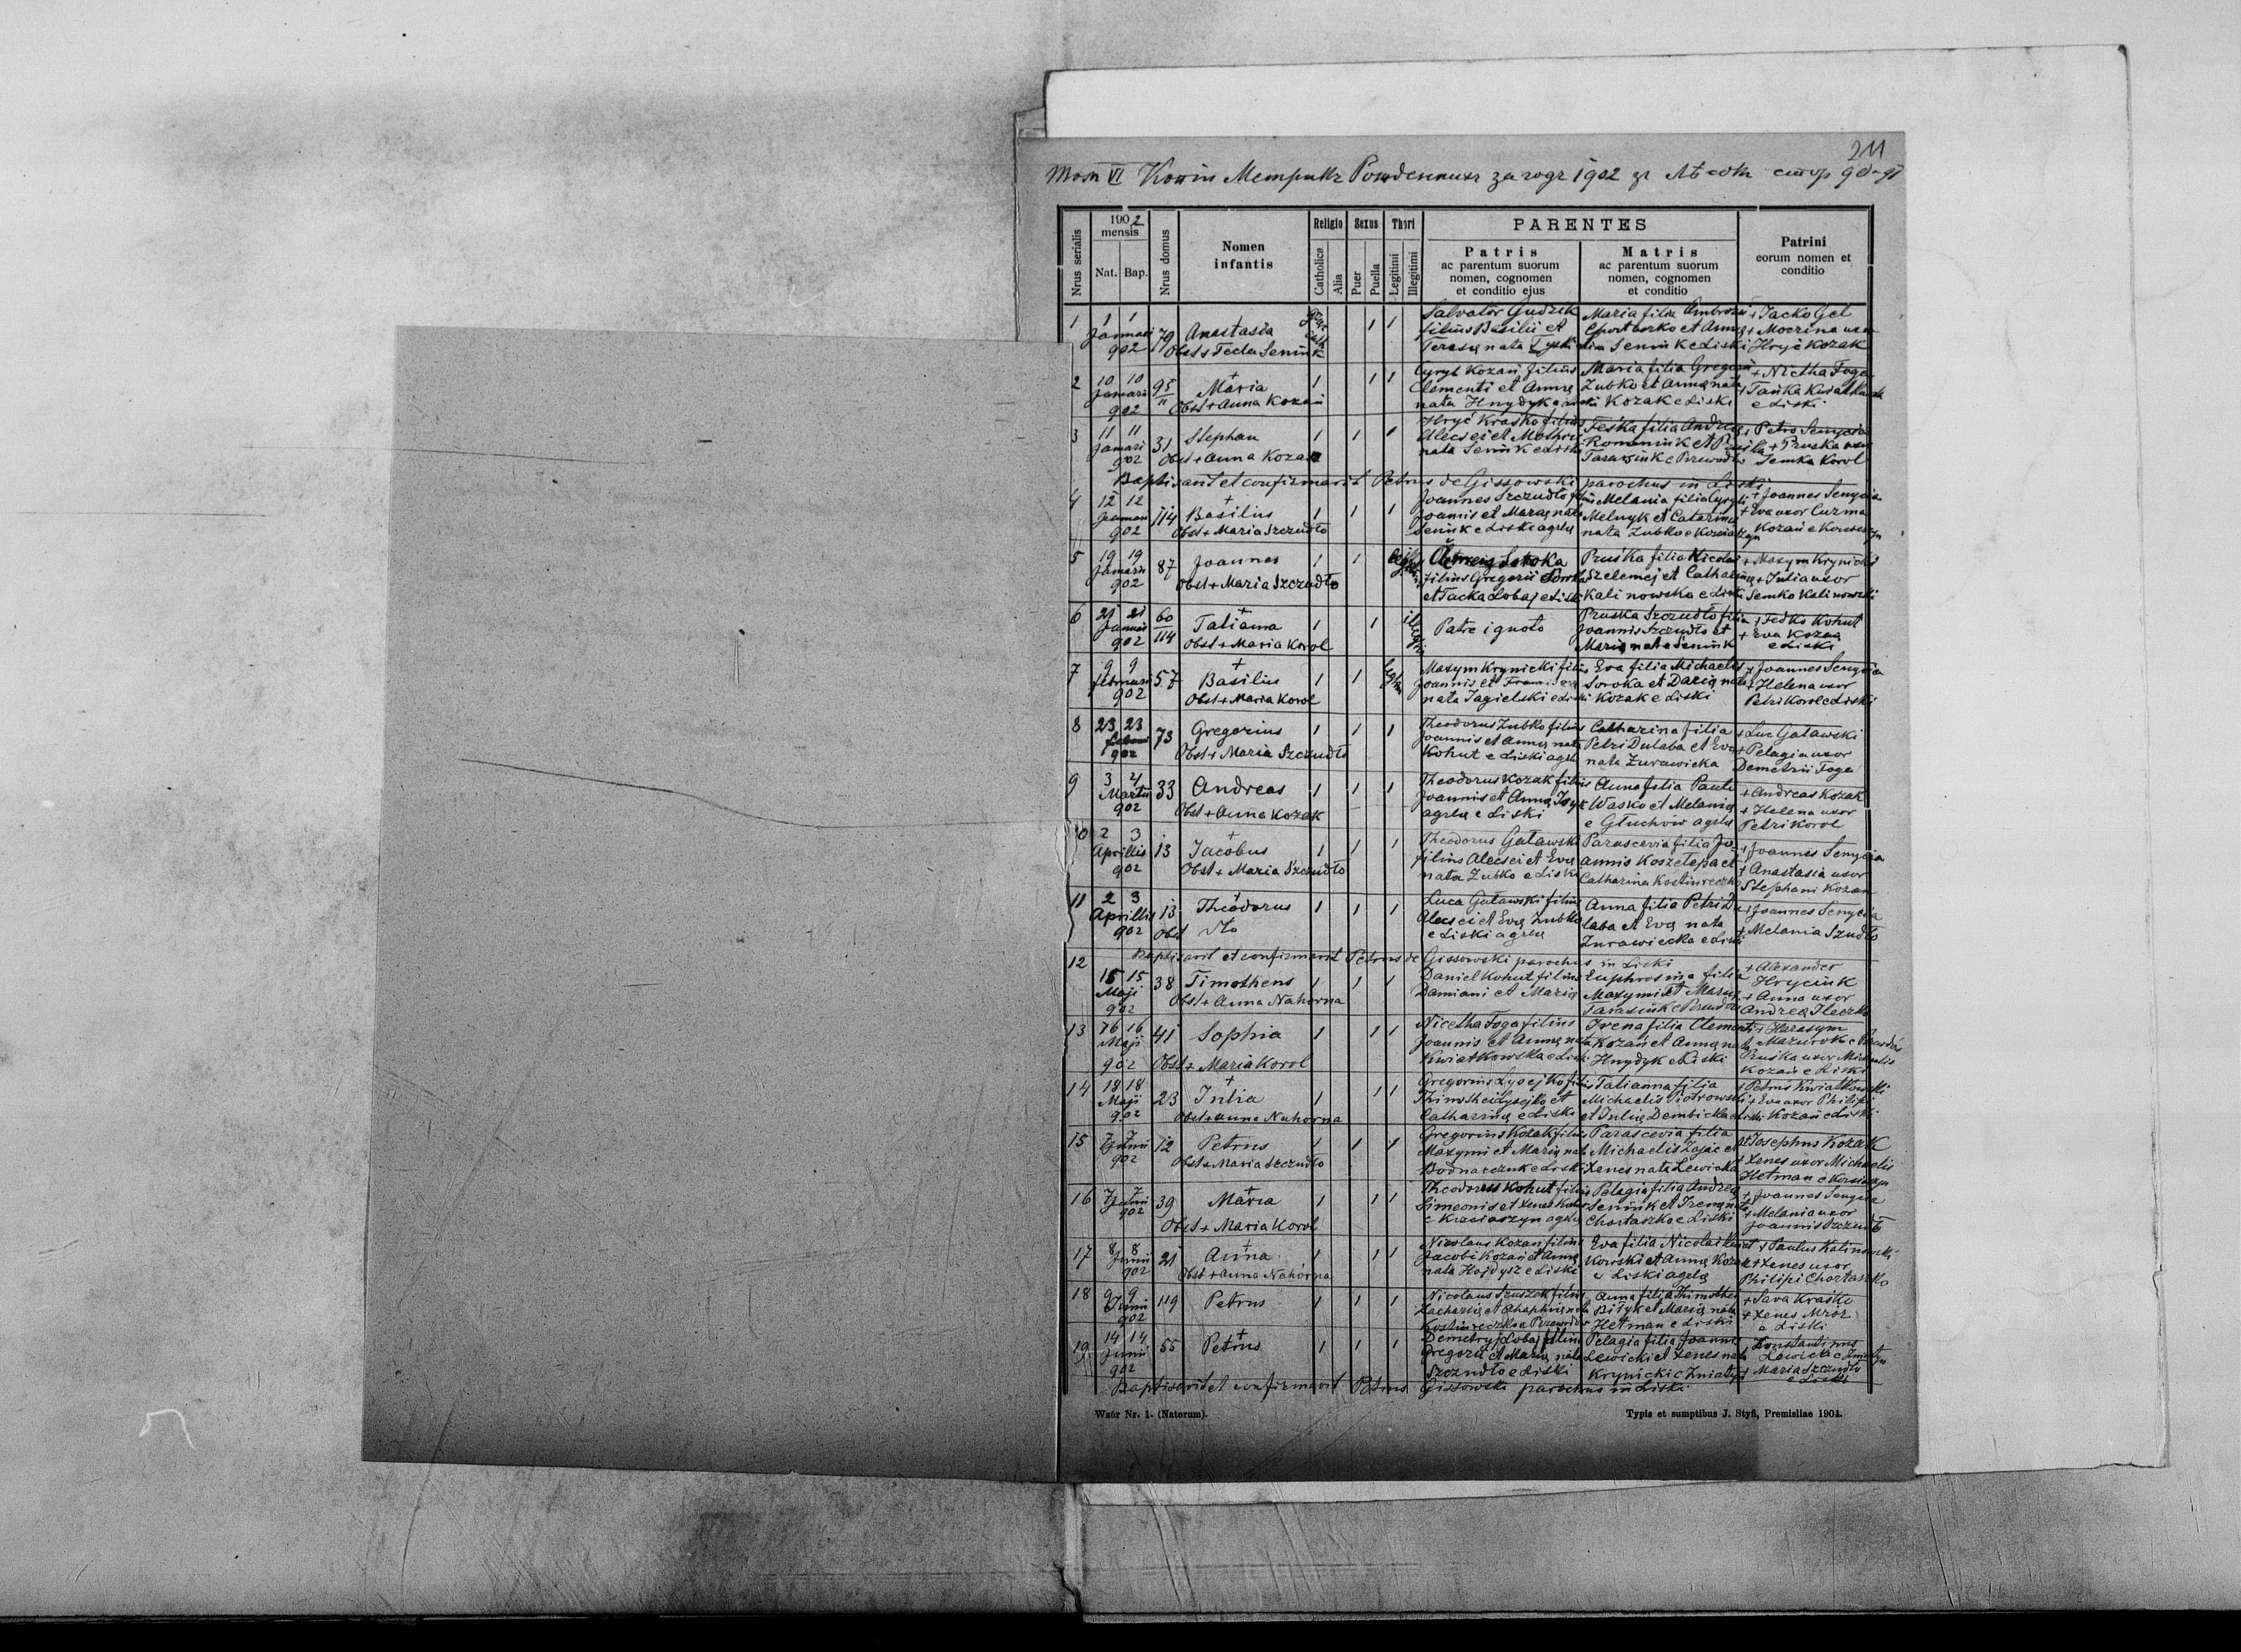 211
Том VI Копія Метрикъ Рожденныхъ за годъ 1902 зъ стор 90-91
Nrus serialis
1902
mensis
Nat. Bap.
Nrus domus
Nomen
infantis
Religio
Catholica
Alia
Sexus
Puer
Puella
Thori
Legitimi
Illegitimi
PARENTES
Patris
ac parentum suorum
nomen, cognomen
et conditio ejus
Matris
ac parentum suorum
nomen, cognomen
et conditio
Patrini
eorum nomen et
conditio
1 1 1 Salvator Gudzik Maria filia Ambrosii + Jacko Gel
Januari 79 Anastasia 1 1 filius Basilii et et Anna + Mocrina uxor
902 Obst + Tecla Seniuk Teresa nata Seniuk e Liski Hryć Kozak
2 10 10 95/II Maria 1 1 1 Cyryl Kozań filius Maria filia Gregorii + Nicetha Foga
Januari Clementi et Anna Zubko et Anna nata + Tańka Kwiatkowska
902 Obst + Anna Kozań nata Hnydyk e Liski Kozak e Liski e Liski
3 11 11 31 Stephan 1 1 1 Hryć Kraśko filius Feśka filia Andrea + Petro Senycia
Januari Alecsei et Romaniuk et + Pruska uxor
902 Obst + Anna Kozak nata Seniuk e Liski Tarasiuk e Przewodów Semka Korol
Baptisavit et confirmavit Petrus de Gissowski parochus in Liski
4 12 12 114 Basilius 1 1 1 Joannes Szczudło filius Melania filia Cyryli + Joannes Senycia
Januari Joannis et Maria nata Melnyk et Catarina + Eva uxor Cuzma
902 Obst + Maria Szczudło Seniuk e Liski agrla nata Zubko e Kościaszyn Kozań e
5 19 19 87 Joannes 1 1 legitimi Soroka Pruśka filia Nicolai + Maxym Krynicki
Januari filius Gregorii Soroka Szelemej et Catharina + Julia uxor
902 Obst + Maria Szczudło et Tacka Lobaj e Liski Kalinowska e Liski Semko Kalinowski
6 21 21 60/114 Tatiana 1 1 illegitimi Patre ignoto Pruska Szczudło filia + Fedko Kohut
Januari Joannis Szczudło et + Eva Kozań
902 Obst + Maria Korol Maria nata Seniuk e Liski
7 9 9 57 Basilius 1 1 Maxym Krynicki filius Eva filia Michaelis + Joannes Senycia
februari Joannis et Soroka et Daria nata + Helena uxor
902 Obst + Maria Korol nata Jagielski e Liski Kozak e Liski Petri Korol e Liski
8 23 23 73 Gregorius 1 1 1 Theodorus Zubko filius Catharina filia + Luc Gaławski
Joannis et Anna nata Petri Dulaba et Eva + Pelagia uxor
902 Obst + Maria Szczudło Kohut e Liski agrla nata Żurawicka Demetrii Foga
9 3 4 33 Andreas 1 1 1 Theodorus Kozak filius Anna filia Pauli + Andreas Kozak
Martii Joannis et Anna Wasko et Melania + Helena uxor
902 Obst + Anna Kozak agrla e Liski e Głuchów agrla Petri Korol
10 2 3 13 Jacobus 1 1 1 Theodorus Gaławski Parascevia filia Jo- + Joannes Senycia
Aprillis filius Alecsei et Eva annis Koszełepa et + Anastasia uxor
902 Obst + Maria Szczudło nata Zubko e Liski Catharina Kostiureczko Stephani Kozań
11 2 3 13 Theodorus 1 1 1 Luca Gaławski filius Anna filia Petri Du- + Joannes Senycia
Aprillis Alecsei et Eva Zubko laba et Eva nata + Melania Szudło
902 Obst dto e Liski agrla Żurawiecka e Liski
Baptisavit et confirmavit Petrus de Gissowski parochus in Liski
12 15 15 38 Timotheus 1 1 1 Daniel Kohut filius Euphrosina filia + Alexander
Maji Damiani et Maria Maxymi et Hryciuk
902 Obst + Anna Nahorna Tarasiuk e + Anna uxor
Andrea Ileczko
13 16 16 41 Sophia 1 1 1 Nicetha Foga filius Irena filia Clementi + Harasym
Maji Joannis et Anna nata Kozań et Anna nata Mazurok e
902 Obst + Maria Korol Kwiatkowska e Liski Hnydyk e Liski Pruśka uxor Michaelis
Kozań e Liski
14 18 18 23 Julia 1 1 1 Gregorius Łysejko filius Tatianna filia + Petrus Kwiatkowski
Maji Thimothei Łysejko et Michaelis Piotrowski + Eva uxor Philipi
902 Obst + Anna Nahorna Catharina e Liski et Julia Dembicka e Liski Kozań e Liski
15 7 7 12 Petrus 1 1 1 Gregorius Kozak filius Parascevia filia + Josephus Kozak
Junii Maxymi et Maria nata Michaelis Zając et + Xenes uxor Michaelis
902 Obst + Maria Szczudło Bodnarczuk e Liski Xenes nata Lewicka Hetman e
16 7 7 39 Maria 1 1 1 Theodorus Kohut filius Pelagia filia Andrea + Joannes Senycia
Junii Simeonis et Xenes Seniuk et Irena nata + Melania uxor
902 Obst + Maria Korol e Kościaszyn agrla Chortaszko e Liski Joannis Szczudło
17 8 8 21 Anna 1 1 1 Nicolaus Kozań filius Eva filia Nicolai + Paulus Kalinowski
Junii Jacobi Kozań et Anna et Anna Kozak + Xenes uxor
902 Obst + Anna Nahorna nata Hajdysz e Liski e Liski agrla Philipi Chortaszko
18 9 9 119 Petrus 1 1 1 Nicolaus filius Anna filia Thimothei + Sava Kraśko
Junii Zacharia et nata Biłyk et Maria nata + Xenes Mróz
902 Kostiureczko e Przewodów Hetman e Liski e Liski
19 14 14 55 Petrus 1 1 1 Demetryj Lobaj filius Pelagia filia Joannis Constantinus
Junii Gregorii et Maria nata Lewicki et Xenes nata Lewicki e
902 Szczudło e Liski Krynicki e Żniatyn + Maria Szczudło
e Liski
Baptisavit et confirmavit Petrus Gissowski parochus in Liski
Wzór Nr. 1. (Natorum).
Typis et sumptibus J. Styfi, Premisliae 1904.